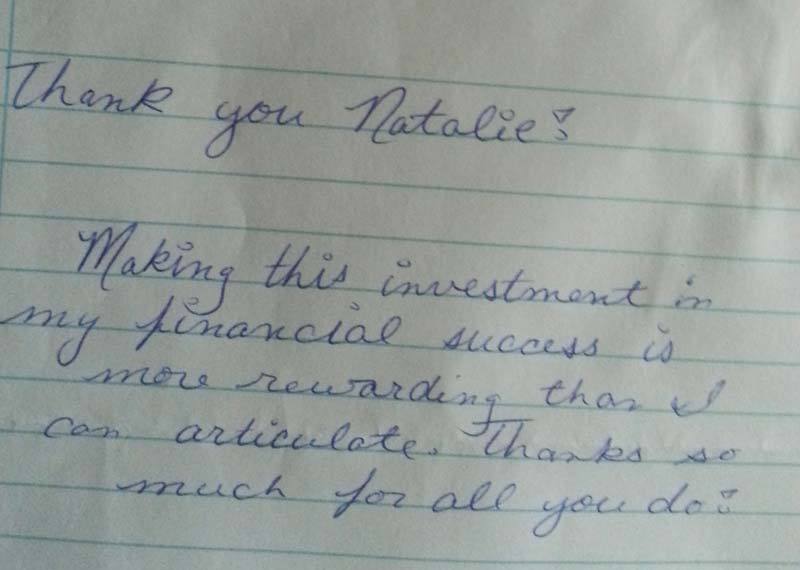 Thank you Natalie!
Making this investment in
my financial success is
more rewarding than I
can articulate. Thanks so
much for all you do!